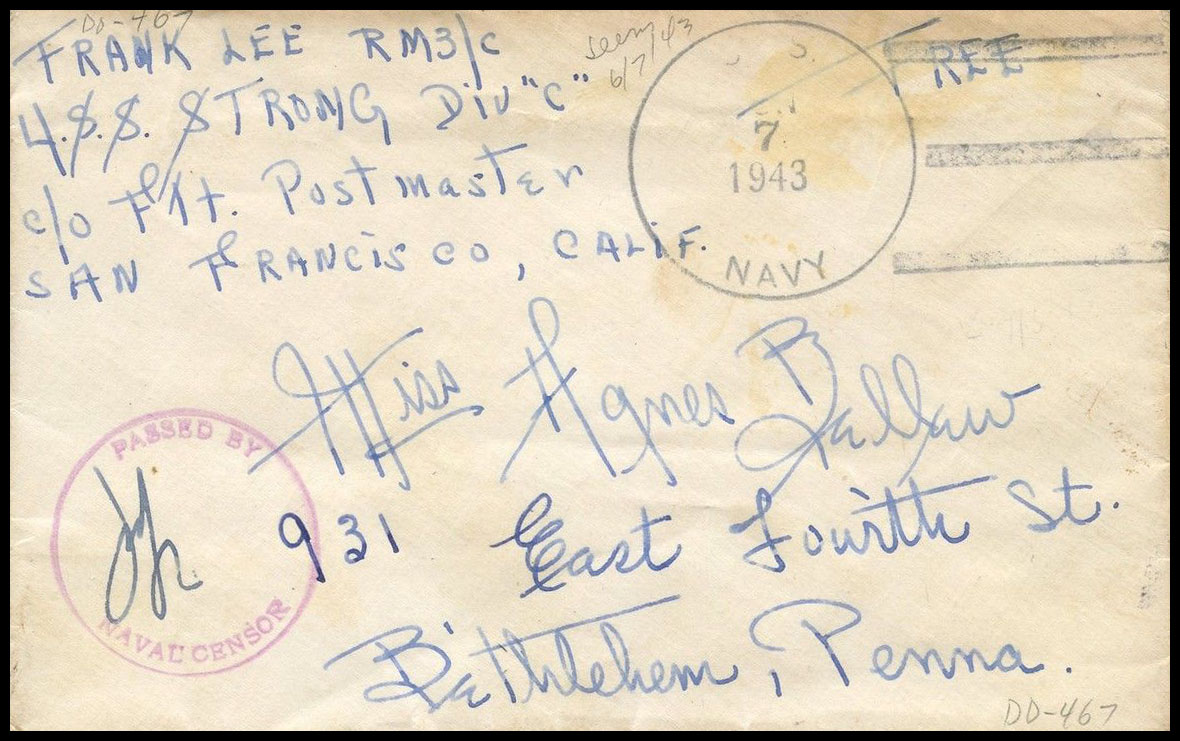 DD-467
FRANK LEE RM3/c
U.S.S. STRONG Div "C"
c/o Flt. Postmaster
SAN FRANCISCO, CALIF.
6/7/43
FREE
7
1943
NAVY
Miss Agnes Ballaw
931 East Fourth St.
Bethlehem, Penna.
PASSED BY
NAVAL CENSOR
DD-467